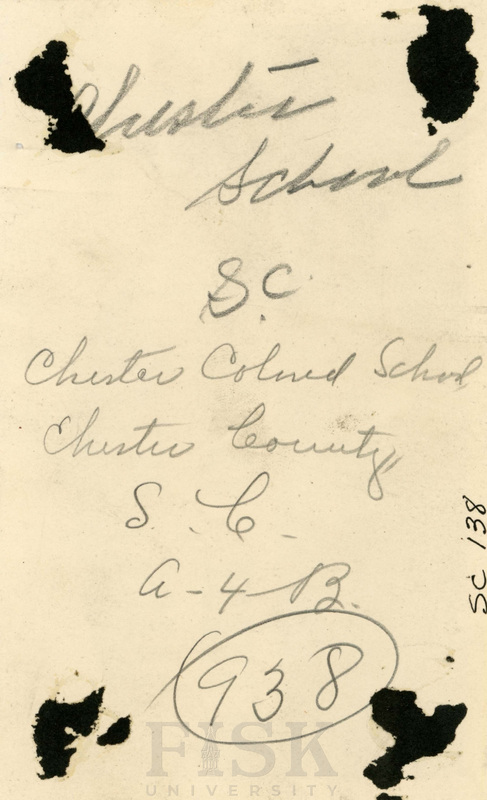 Chester
School
SC
Chester Colored School
Chester County,
S. C.
A-4-B.
938
SC 138
FISK
UNIVERSITY